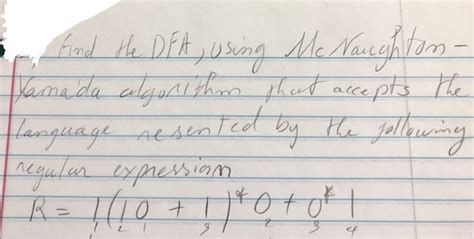 find the DFA, using McNaughton-
Yamada algorithm that accepts the
language resented by the following
regular expression
R = 1(10 + 1)*0 + 0*1
1 2 1 3 2 3 4